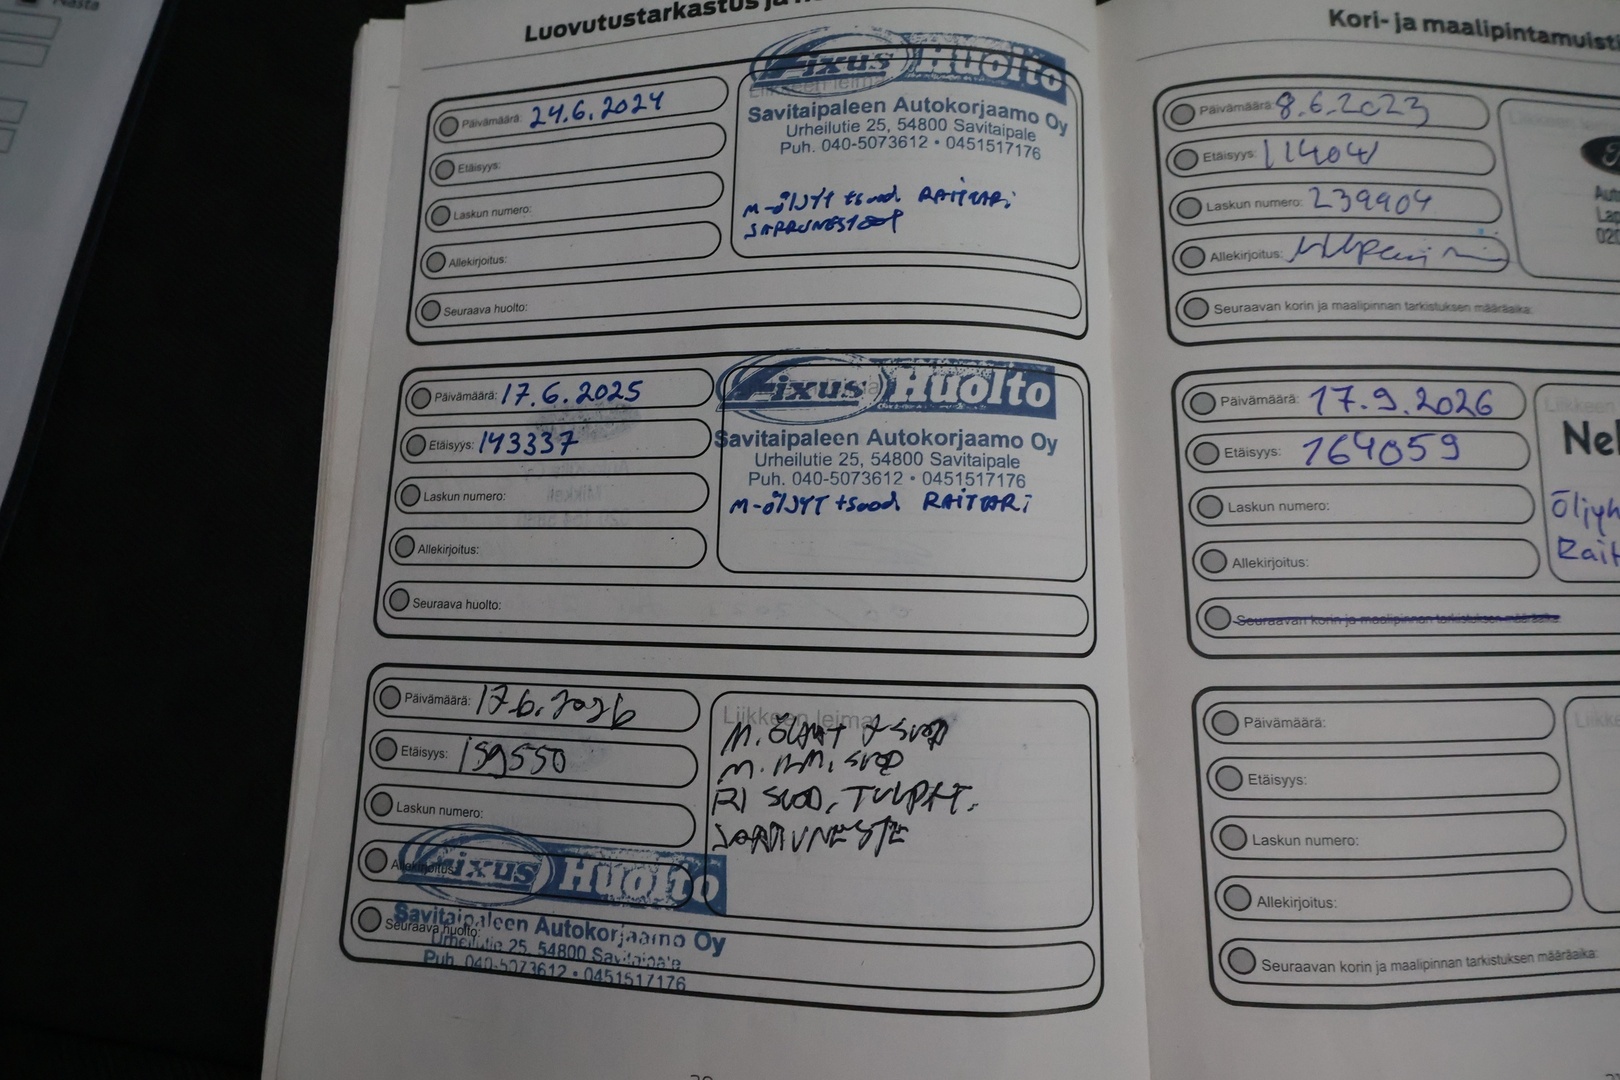 Nasta
Luovutustarkastus ja
Päivämäärä: 24.6.2024
Etäisyys:
Laskun numero:
Allekirjoitus:
Seuraava huolto:
Liikkeen leima
Fixus Huolto
Savitaipaleen Autokorjaamo Oy
Urheilutie 25, 54800 Savitaipale
Puh. 040-5073612 • 0451517176
M-ÖLJYT + suod RAITTARI
JARRUNESTEET
Päivämäärä: 17.6.2025
Etäisyys: 143337
Laskun numero:
Allekirjoitus:
Seuraava huolto:
Fixus Huolto
Savitaipaleen Autokorjaamo Oy
Urheilutie 25, 54800 Savitaipale
Puh. 040-5073612 • 0451517176
M-ÖLJYT + suod RAITTARI
Päivämäärä: 17.6.2026
Etäisyys: 159550
Laskun numero:
Allekirjoitus:
Seuraava huolto:
Liikkeen leima
M. ÖLJYT + SUOD
M. ILM. SUOD
RI SUOD, TULPAT,
JARRUNESTE
Fixus Huolto
Savitaipaleen Autokorjaamo Oy
Urheilutie 25, 54800 Savitaipale
Puh. 040-5073612 • 0451517176
Kori- ja maalipintamuisti
Päivämäärä: 8.6.2023
Etäisyys: 11404
Laskun numero: 239904
Allekirjoitus:
Seuraavan korin ja maalipinnan tarkistuksen määräaika:
Liikkeen
Aut
La
020
Päivämäärä: 17.9.2026
Etäisyys: 164059
Laskun numero:
Allekirjoitus:
Seuraavan korin ja maalipinnan tarkistuksen määräaika
Liikkeen
Nel
Öljyh
Rait
Päivämäärä:
Etäisyys:
Laskun numero:
Allekirjoitus:
Seuraavan korin ja maalipinnan tarkistuksen määräaika:
Liikke